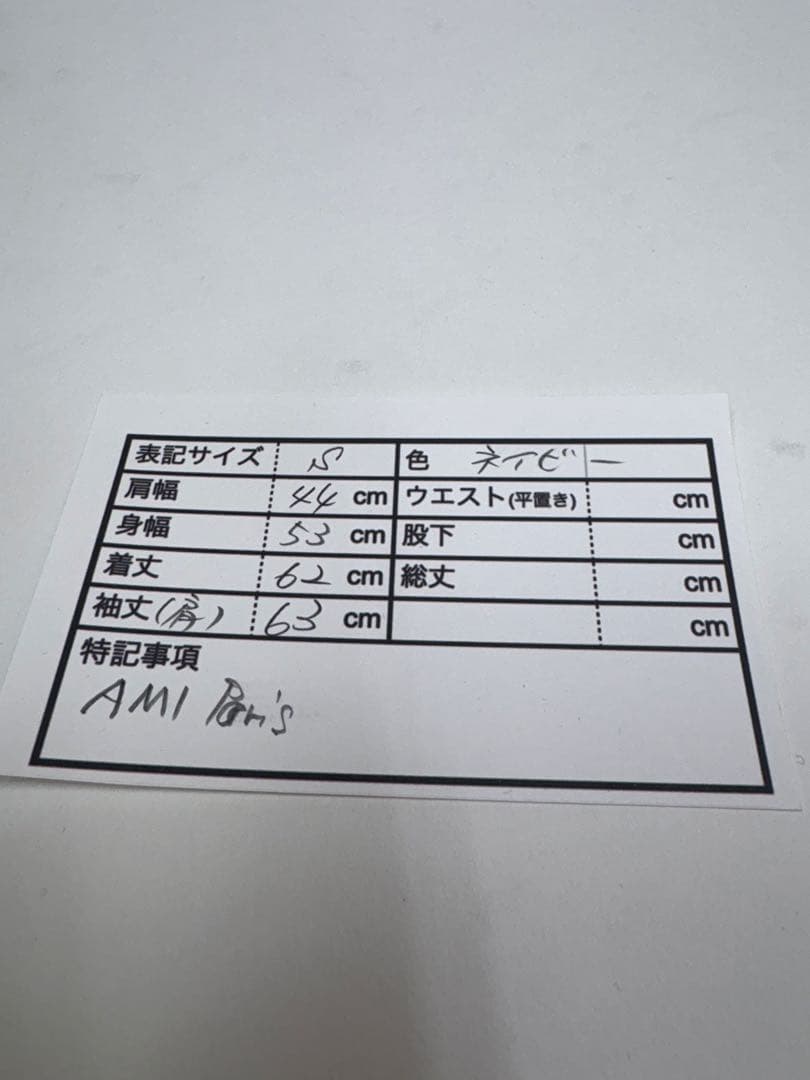 表記サイズ S 色 ネイビー
肩幅 44 cm ウエスト(平置き) cm
身幅 53 cm 股下 cm
着丈 62 cm 総丈 cm
袖丈(肩) 63 cm cm
特記事項
AMI Paris